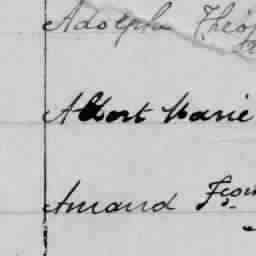 Adolphe Théop
Albert Marie
Amand Fran